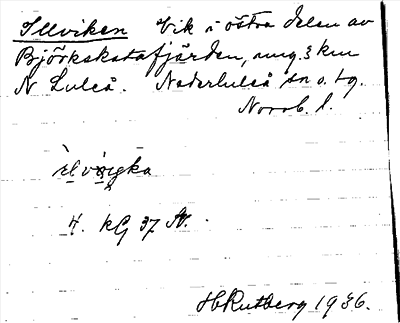 Illviken Vik i östra delen av
Björkskatafjärden, ung. 3 km
N Luleå. Nederluleå sn o. tg.
Norrb. l.
4. kG 37 Av.
H Rutberg 1936.